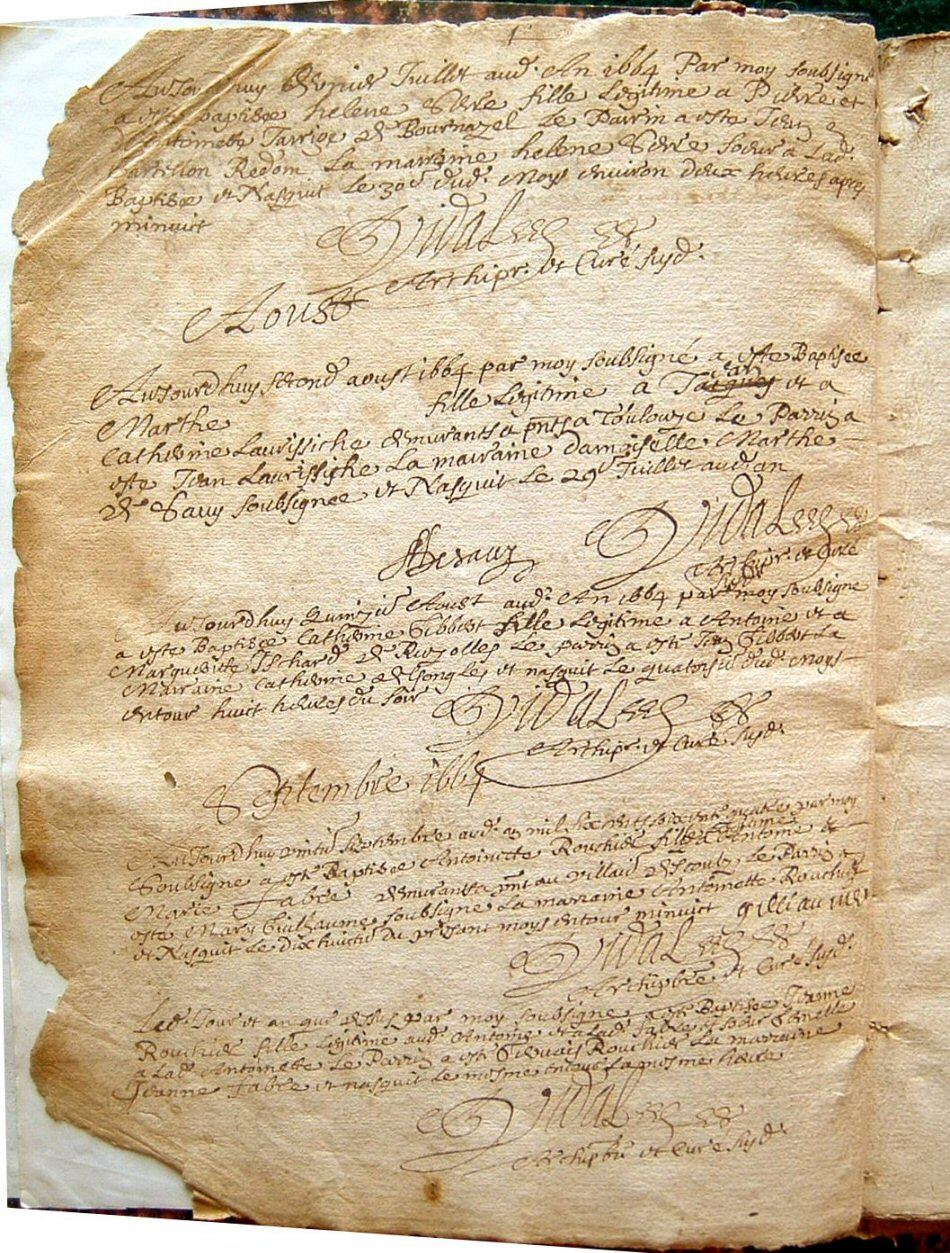 Aujourdhuy dernier Juillet aud. An 1664 Par moy soubsigné
a esté baptisée helene Serre fille Legitime a Pierre et
d'Antoinette de Bournazel Le Parrin a esté Jean
Redom La marraine helene Serre soeur a Lad.
Baptisée et Nasquit Le 30e dud. Moys environ deux heures apres
minuict
Vidal
Archipr. et Curé susd.
Aoust
Aujourdhuy second aoust 1664 par moy soubsigné a esté Baptisée
Marthe fille Legitime a Jacques Jean et a
Catherine Laurissiche demurants a pnts a Toulouze Le Parrin a
esté Jean Laurissiche La marraine damoiselle Marthe
de Saux soubsignée et Nasquit Le 29e Juillet aud. an
Vidal
Archipr. et Curé
susd.
Desaux
Aujourdhuy Aoust aud. An 1664 par moy soubsigné
a esté Baptisée Catherine Gibbert fille Legitime a Antoine et a
Marguerite de Le parrin a esté Jean Gibbert La
Marraine Catherine et nasquit Le quatorsie dud. Moys
entour huict heures du soir
Vidal
Archipr. et Curé susd.
Septembre 1664
Aujourdhuy Septembre aud. an mil six cents soixante quatre par moy
Soubsigné a esté Baptisée Antoinette Rouchier fille Legitime a Antoine &
Marie Fabre demurants a pnt au Le Parrin a
esté Mary Guilhaume soubsigné La marraine Antoinette Rouchier
et Nasquit Le dix huictie du present moys entour minuict
Vidal
Archipbre et Curé susd.
Led. Jour et an que dessus par moy soubsigné a esté Baptisée Jeanne
Rouchier fille Legitime aud. Antoine et a Lad. Fabre et soeur
a Lad. Antoinette Le Parrin a esté Gervais Rouchier La marraine
Jeanne Fabre et nasquit Le mesme La mesme heure
Vidal
Archipbre et Curé susd.